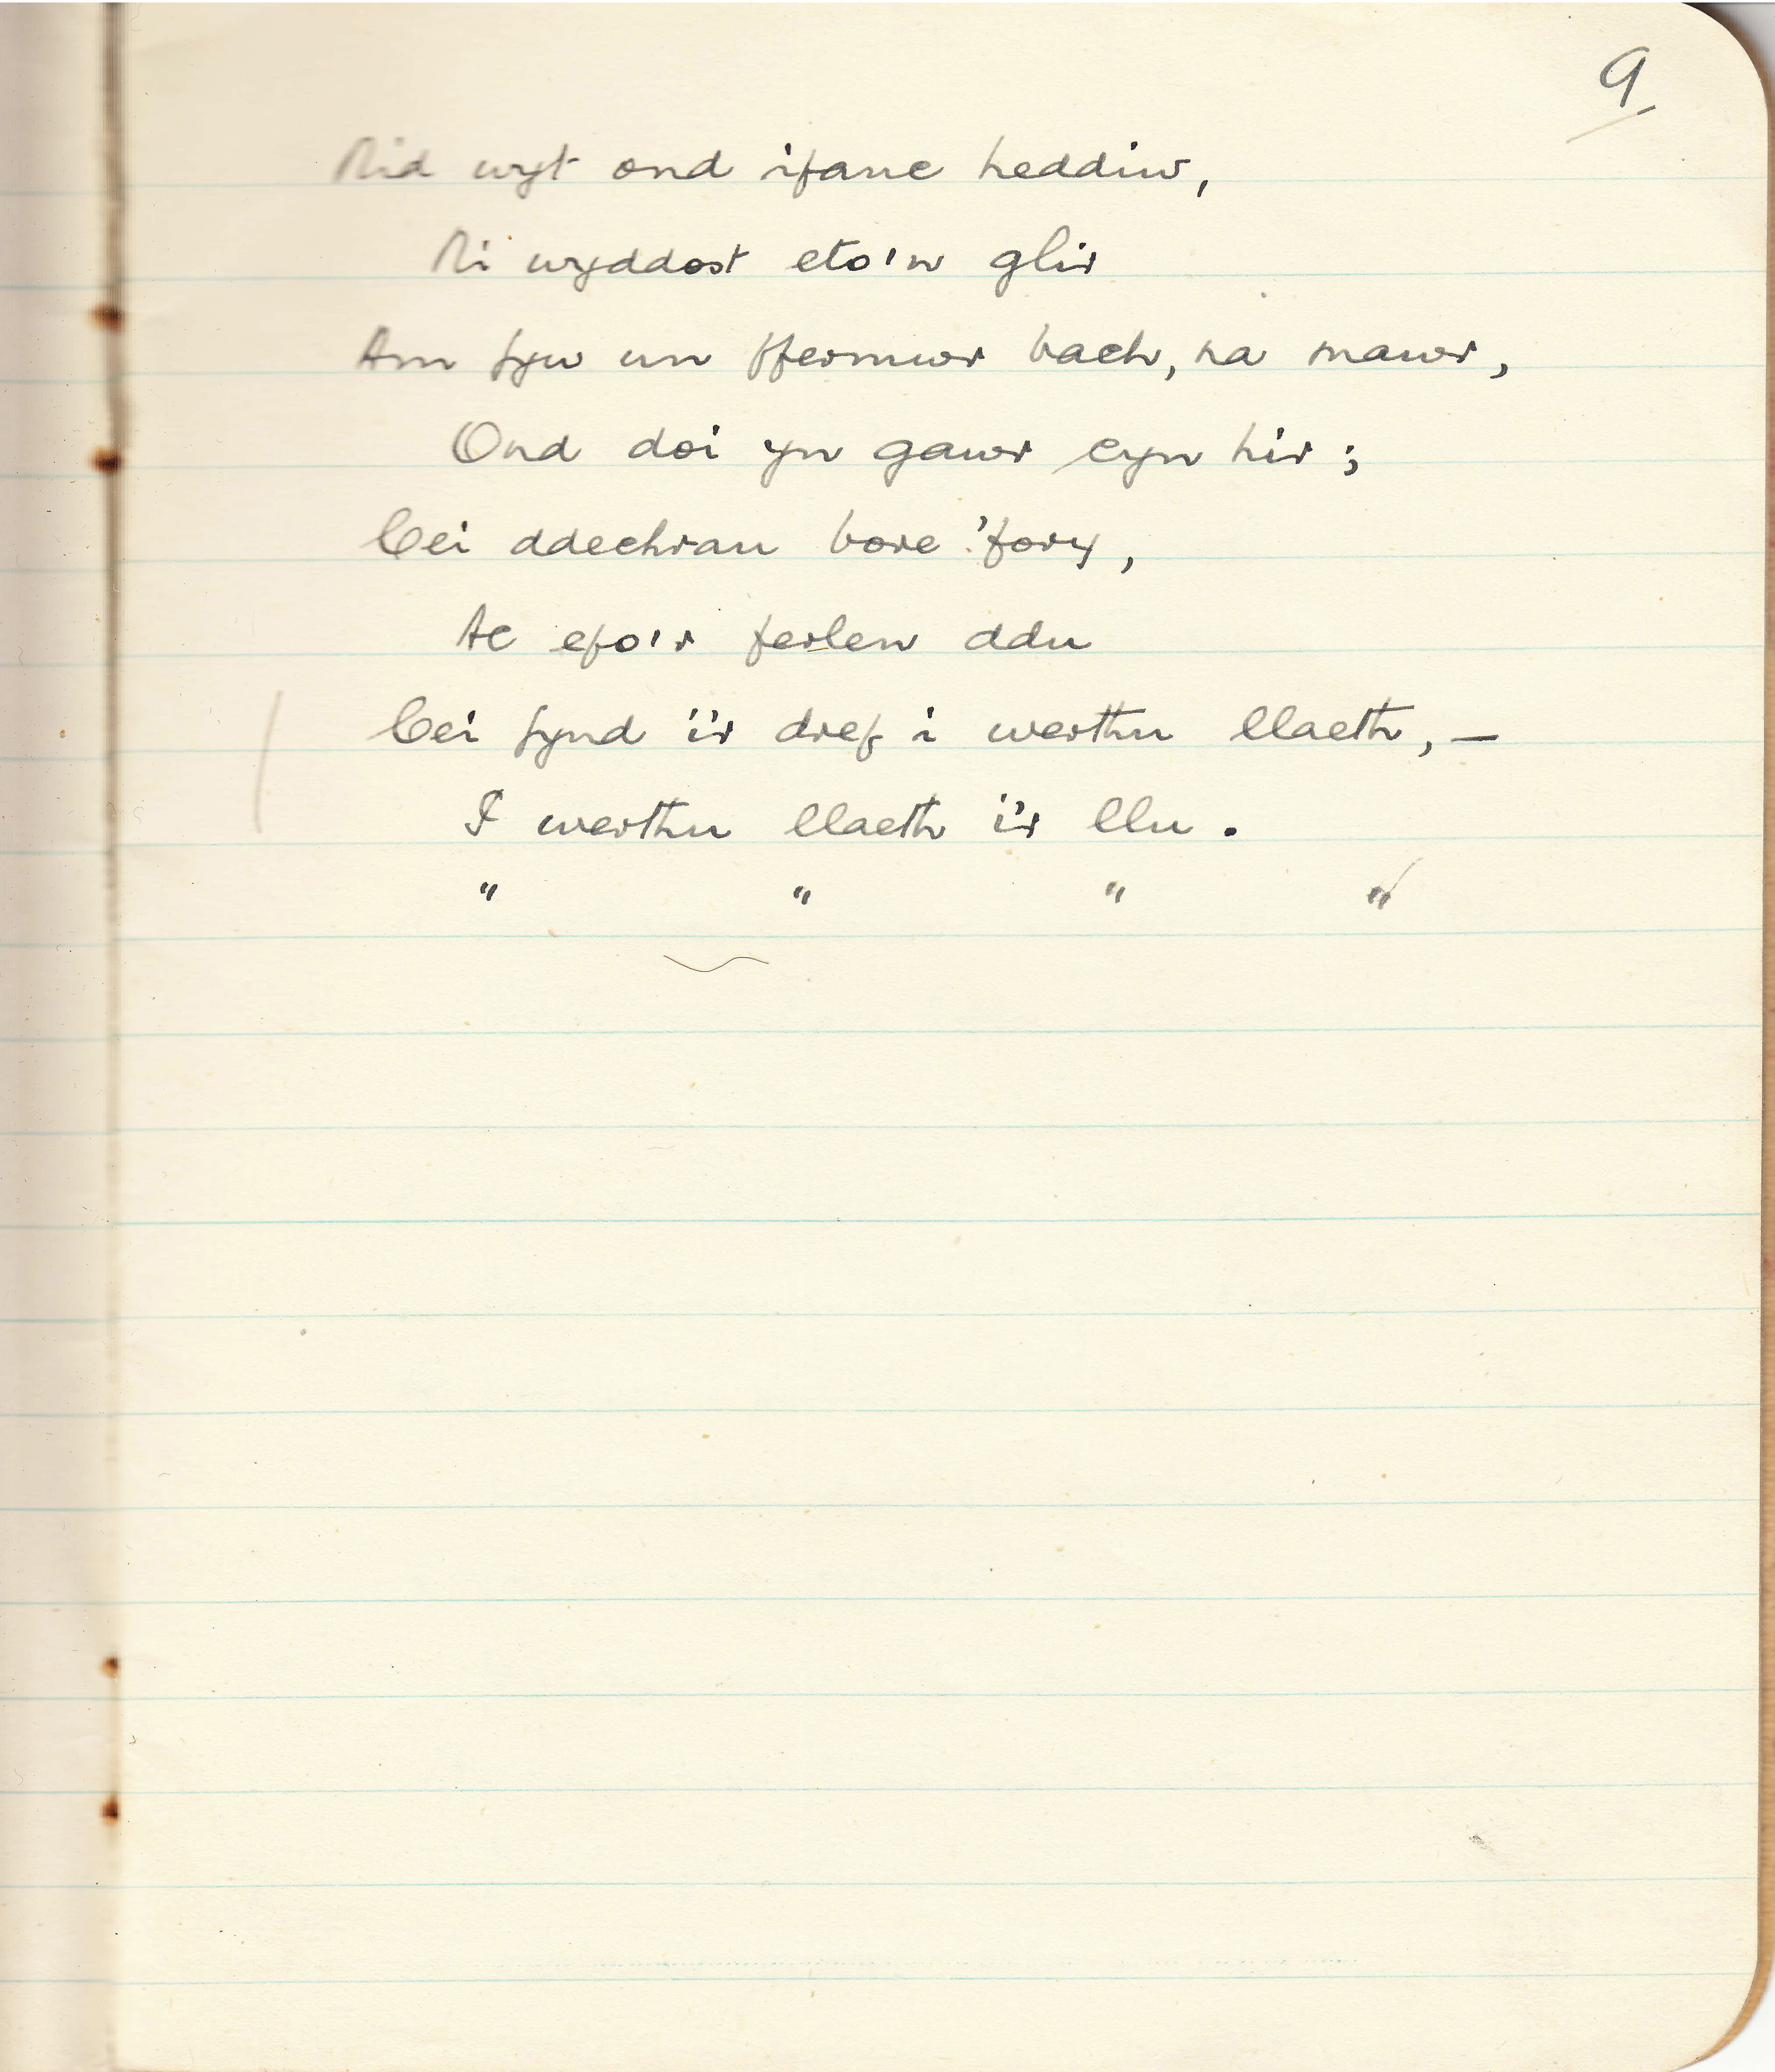 9
Nid wyt ond ifanc heddiw,
Ni wyddost eto'n glir
Am fyw un ffermwr bach, na mawr,
Ond doi yn gawr cyn hir;
Cei ddechrau bore 'fory,
Ac efo'r ferlen ddu
Cei fynd i'r dref i werthu llaeth, —
I werthu llaeth i'r llu.
" " " "